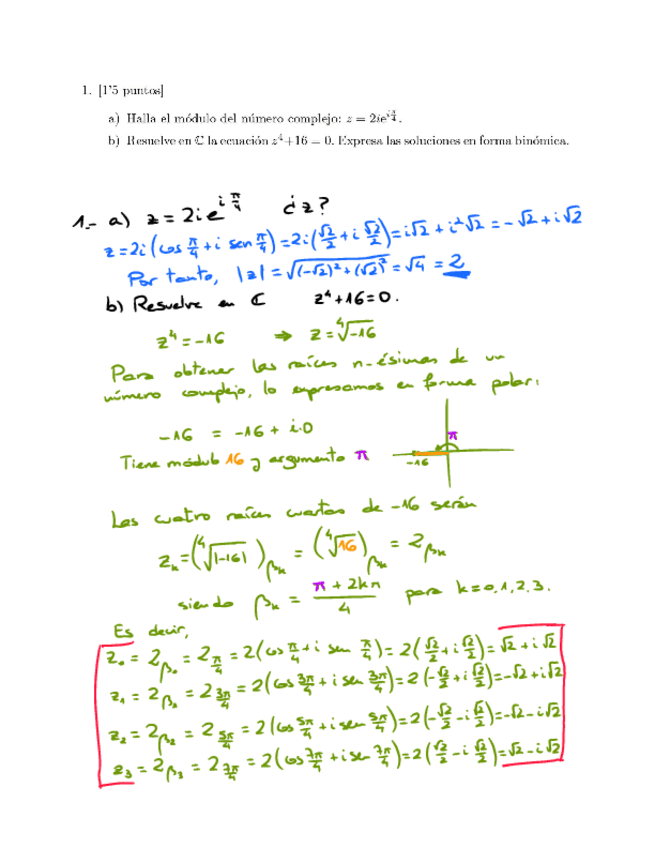 1. [1'5 puntos]
a) Halla el módulo del número complejo: z = 2ie^{i\frac{π}{4}}.
b) Resuelve en ℂ la ecuación z⁴+16 = 0. Expresa las soluciones en forma binómica.
1.- a) z = 2i e^{i\frac{π}{4}} ¿z?
z = 2i(cos π/4 + i sen π/4) = 2i(√2/2 + i √2/2) = i√2 + i²√2 = -√2 + i√2
Por tanto, |z| = √((-√2)² + (√2)²) = √4 = 2
b) Resuelve en ℂ z⁴+16=0.
z⁴ = -16 ⇒ z = ⁴√-16
Para obtener las raíces n-ésimas de un
número complejo, lo expresamos en forma polar:
-16 = -16 + i·0
Tiene módulo 16 y argumento π
π
-16
Las cuatro raíces cuartas de -16 serán
z_k = (⁴√|-16|)_{β_k} = (⁴√16)_{β_k} = 2_{β_k}
siendo β_k = (π + 2kπ)/4 para k=0,1,2,3.
Es decir,
z₀ = 2_{β₀} = 2_{π/4} = 2(cos π/4 + i sen π/4) = 2(√2/2 + i √2/2) = √2 + i√2
z₁ = 2_{β₁} = 2_{3π/4} = 2(cos 3π/4 + i sen 3π/4) = 2(-√2/2 + i √2/2) = -√2 + i√2
z₂ = 2_{β₂} = 2_{5π/4} = 2(cos 5π/4 + i sen 5π/4) = 2(-√2/2 - i √2/2) = -√2 - i√2
z₃ = 2_{β₃} = 2_{7π/4} = 2(cos 7π/4 + i sen 7π/4) = 2(√2/2 - i √2/2) = √2 - i√2